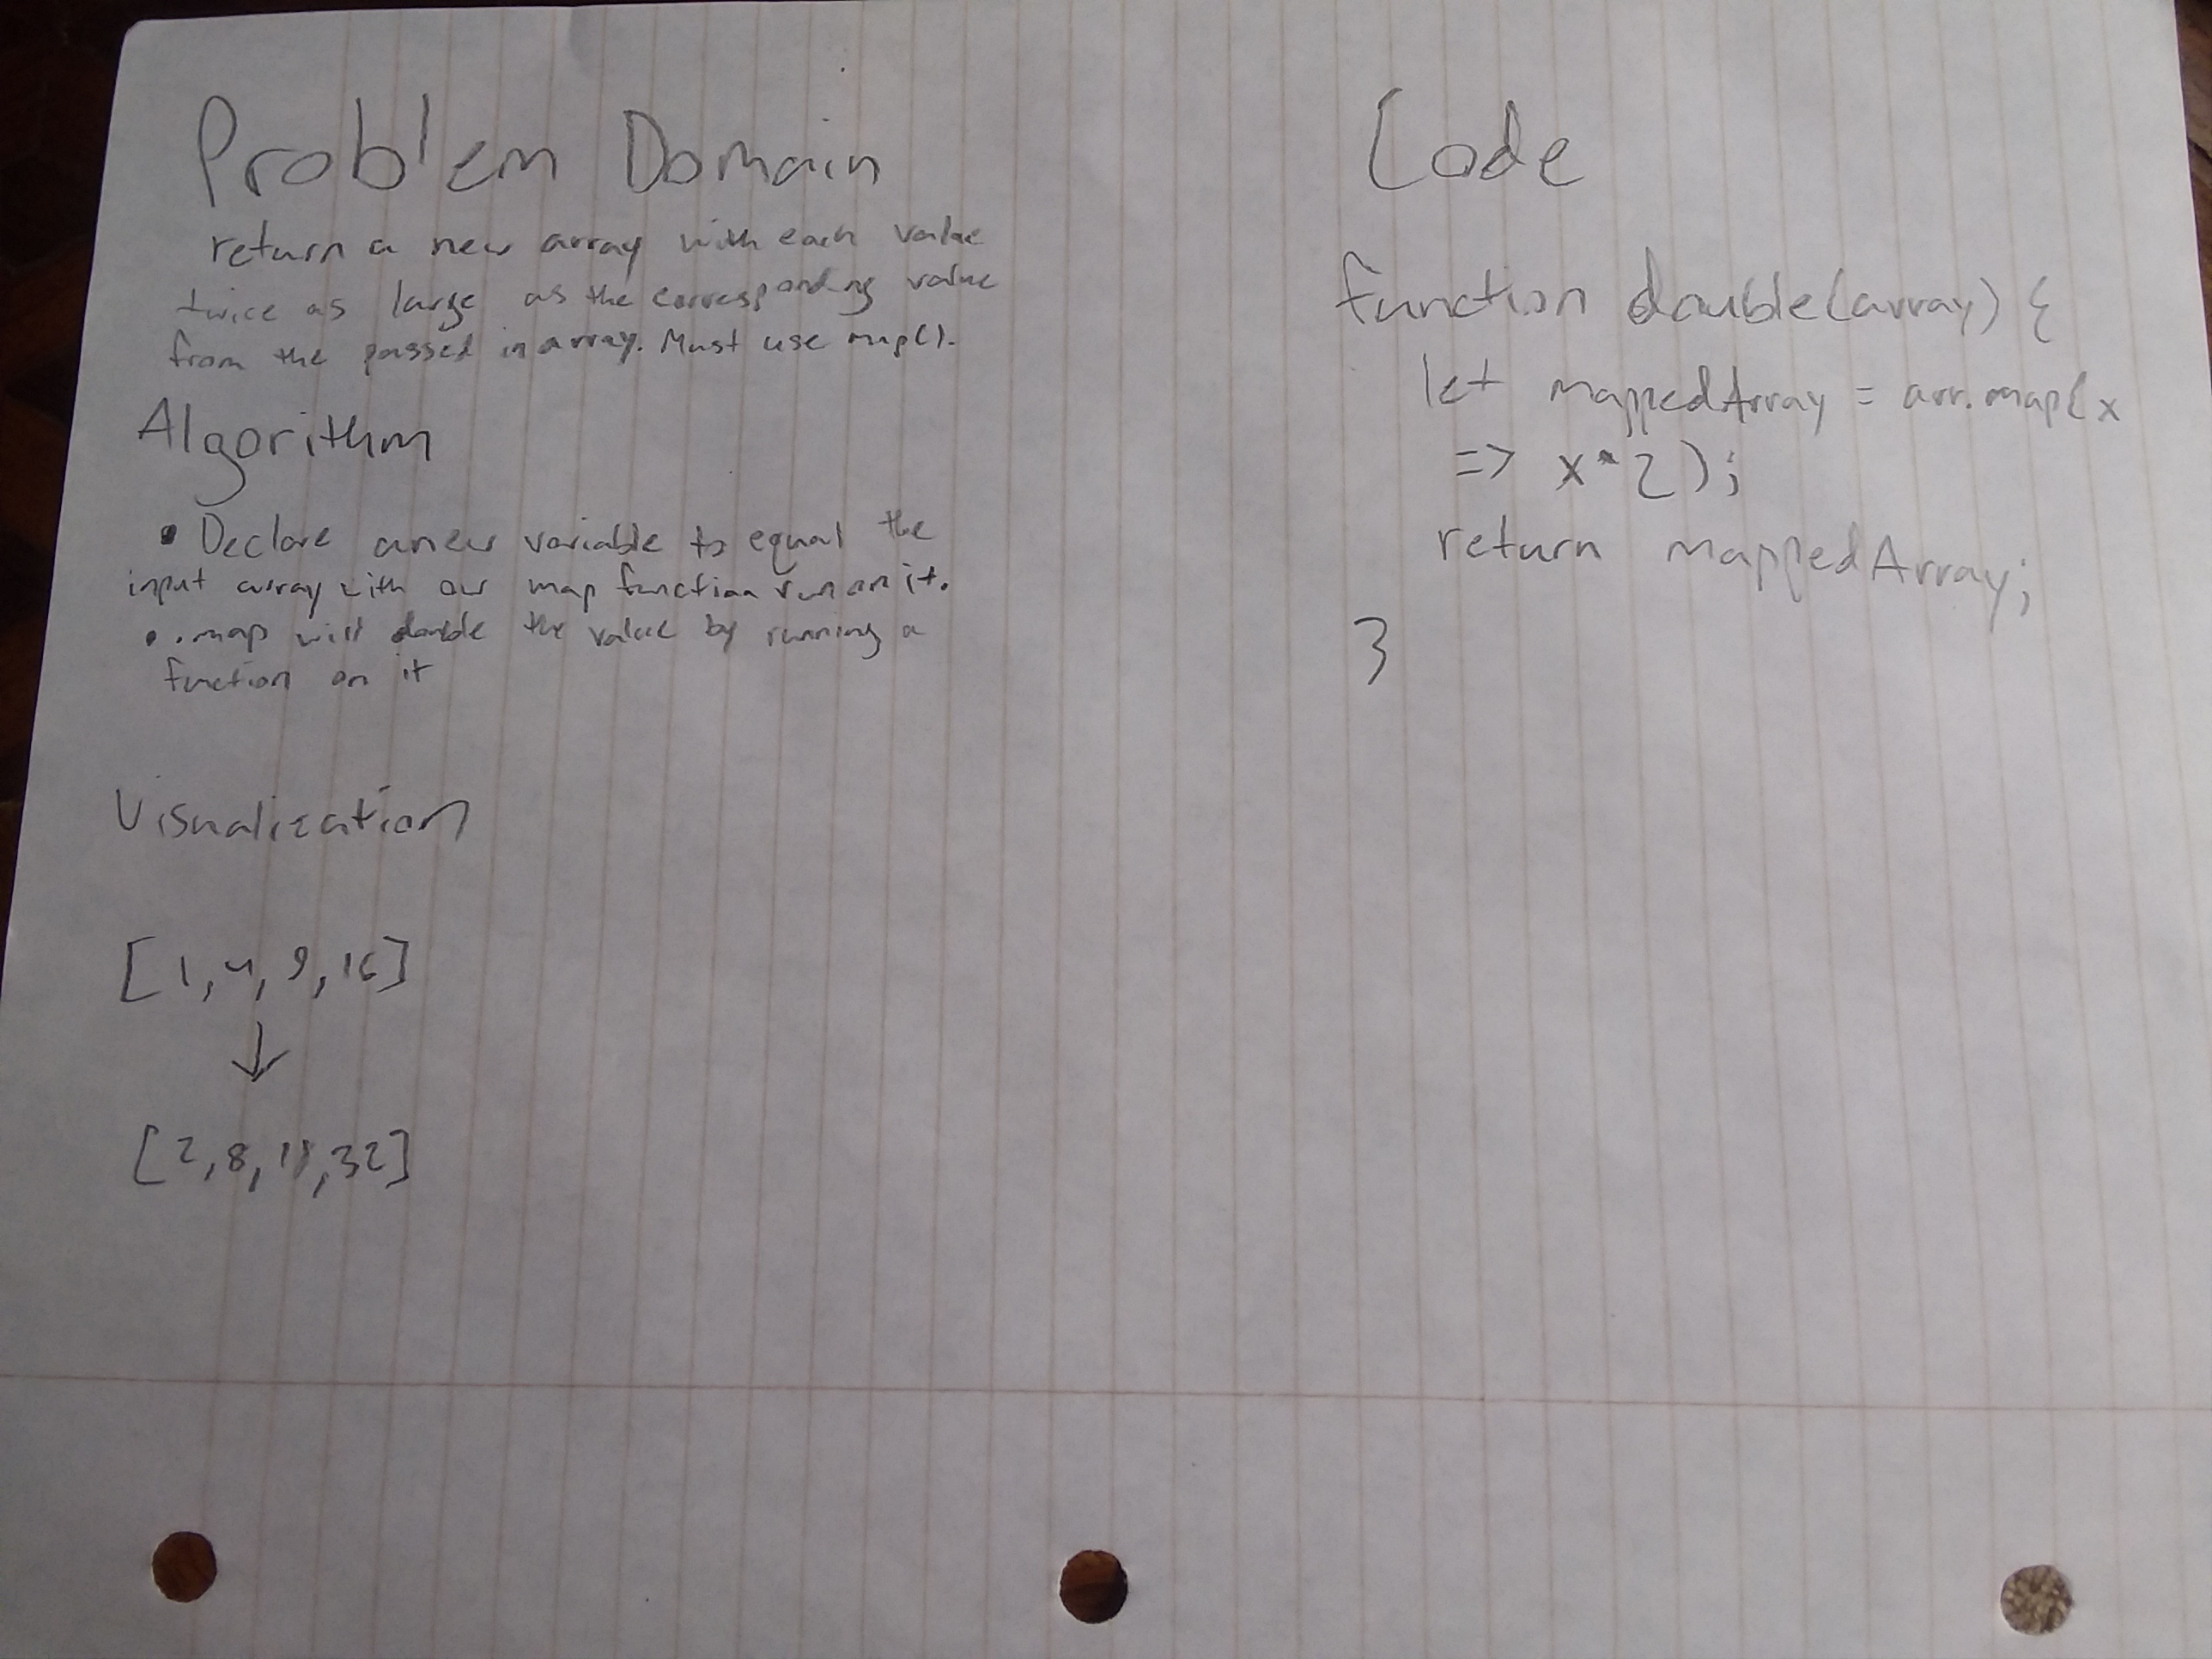 Problem Domain
return a new array with each value
twice as large as the corresponding value
from the passed in array. Must use map().
Algorithm
• Declare a new variable to equal the
input array with our map function run on it.
• .map will double the value by running a
function on it
Visualization
[1,4,9,16]
↓
[2,8,18,32]
Code
function double(array) {
let mappedArray = arr.map(x
=> x*2);
return mappedArray;
}